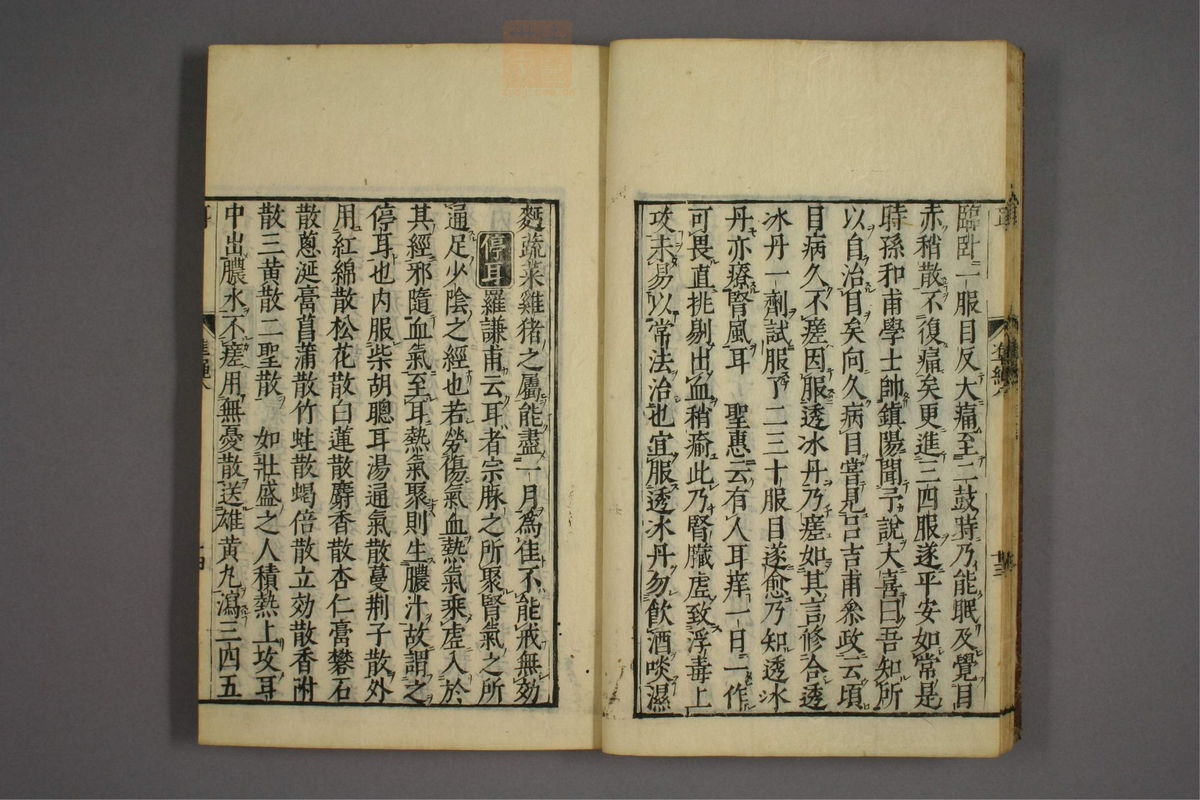 臨卧一服目反大痛至二鼓時乃能眠及覺目
赤稍散不復痛矣更進三四服遂平安如常是
時孫和甫學士帥鎮陽聞予說大喜曰吾知所
以自治目矣向久病目嘗見呂吉甫叅政云頃
目病久不瘥因服透冰丹乃瘥如其言修合透
冰丹一劑試服了二三十服目遂愈乃知透冰
丹亦療腎風耳 聖惠云有人耳痒一日一作
可畏直挑剔出血稍瘉此乃腎臟虛致浮毒上
攻未易以常法治也宜服透冰丹勿飲酒啖濕
麪蔬菜雞猪之屬能盡一月爲佳不能戒無効
停耳 羅謙甫云耳者宗脉之所聚腎氣之所
通足少陰之經也若勞傷氣血熱氣乘虛入於
其經邪隨血氣至耳熱氣聚則生膿汁故謂之
停耳也内服柴胡聰耳湯通氣散蔓荆子散外
用紅綿散松花散白蓮散麝香散杏仁膏礬石
散蔥涎膏菖蒲散竹蛀散蝎倍散立効散香附
散三黄散二聖散 如壯盛之人積熱上攻耳
中出膿水不瘥用無憂散送雄黄丸瀉三四五